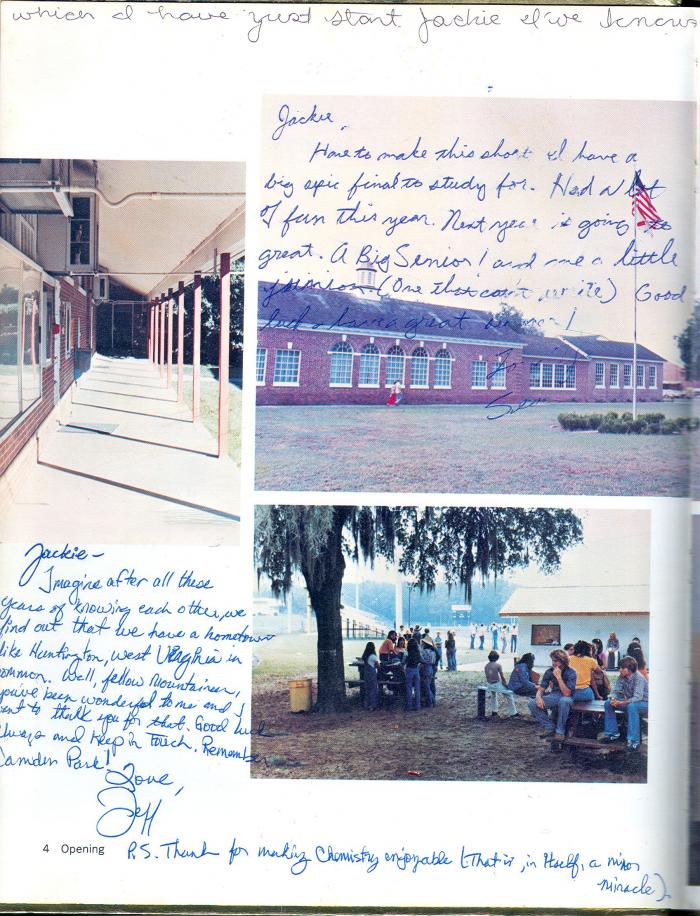 which I have just start Jackie I've known
Jackie,
Have to make this short I have a
big epic final to study for. Had a lot
of fun this year. Next year is going to
great. A Big Senior! and me a little
junior (One that can't write) Good
luck & have a great
Jackie-
Imagine after all these
years of knowing each other, we
find out that we have a hometown
like Huntington, West Virginia in
common. Well, fellow Mountaineer,
you've been wonderful to me and I
want to thank you for that. Good Luck
always and Keep in Touch. Remember
Camden Park!!
Love,
Jeff
4 Opening
P.S. Thank for making Chemistry enjoyable (That is, in itself, a minor
miracle).